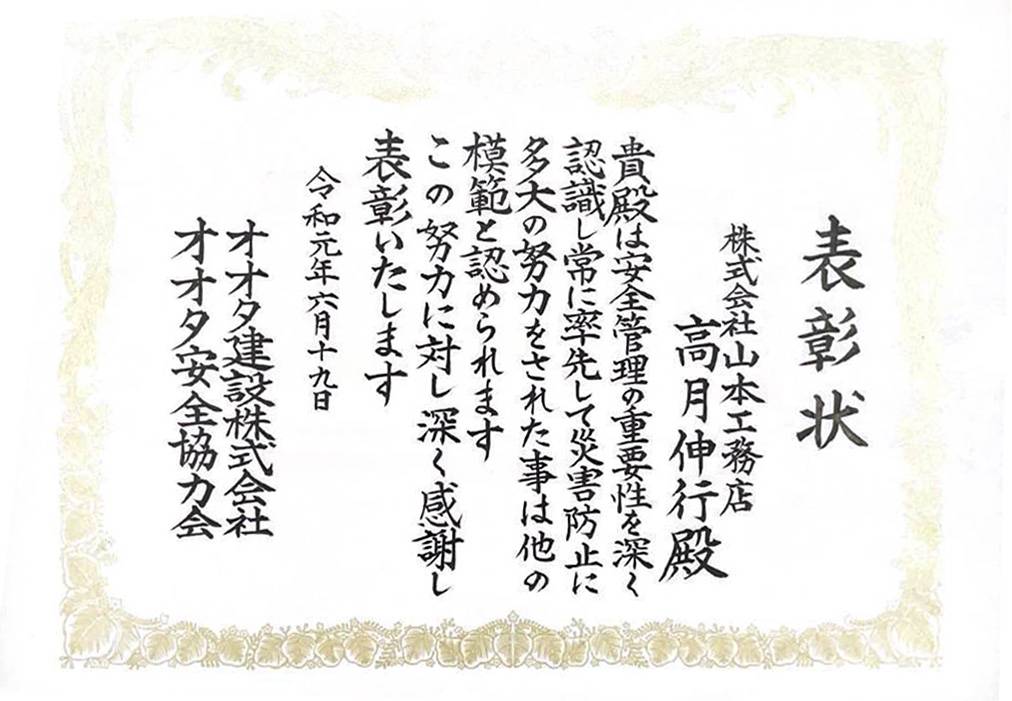 表彰状
株式会社山本工務店
高月伸行殿
貴殿は安全管理の重要性を深く
認識し常に率先して災害防止に
多大の努力をされた事は他の
模範と認められます
この努力に対し深く感謝し
表彰いたします
令和元年六月十九日
オオタ建設株式会社
オオタ安全協力会